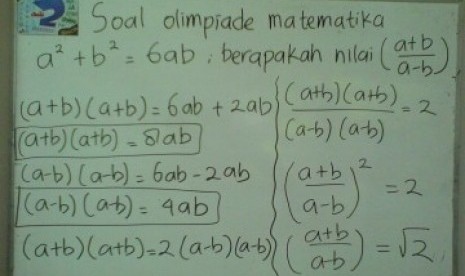 Soal olimpiade matematika
a² + b² = 6ab, berapakah nilai (a+b/a-b)
(a+b)(a+b) = 6ab + 2ab
(a+b)(a+b) = 8ab
(a-b)(a-b) = 6ab - 2ab
(a-b)(a-b) = 4ab
(a+b)(a+b) = 2(a-b)(a-b)
(a+b)(a+b)/(a-b)(a-b) = 2
(a+b/a-b)² = 2
(a+b/a-b) = √2